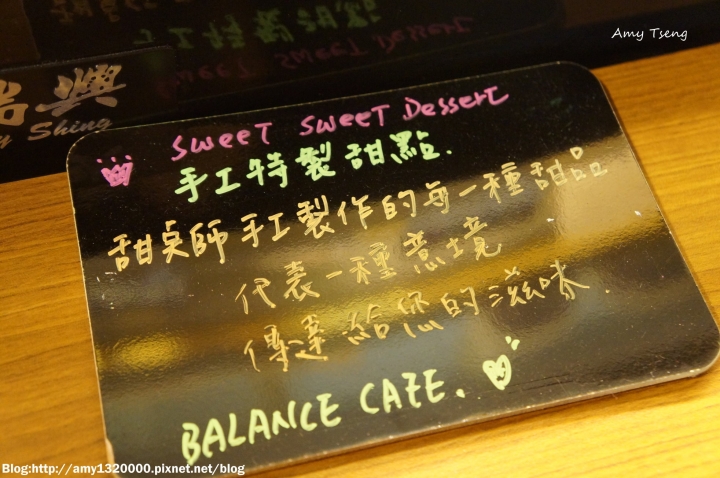 Amy Tseng
瑞興
y Shing
SWEET SWEET DESSERT
手工特製甜點.
甜桌師手工製作的每一種甜品
代表一種意境
傳達給您的滋味.
BALANCE CAFE.
Blog:http://amy1320000.pixnet.net/blog